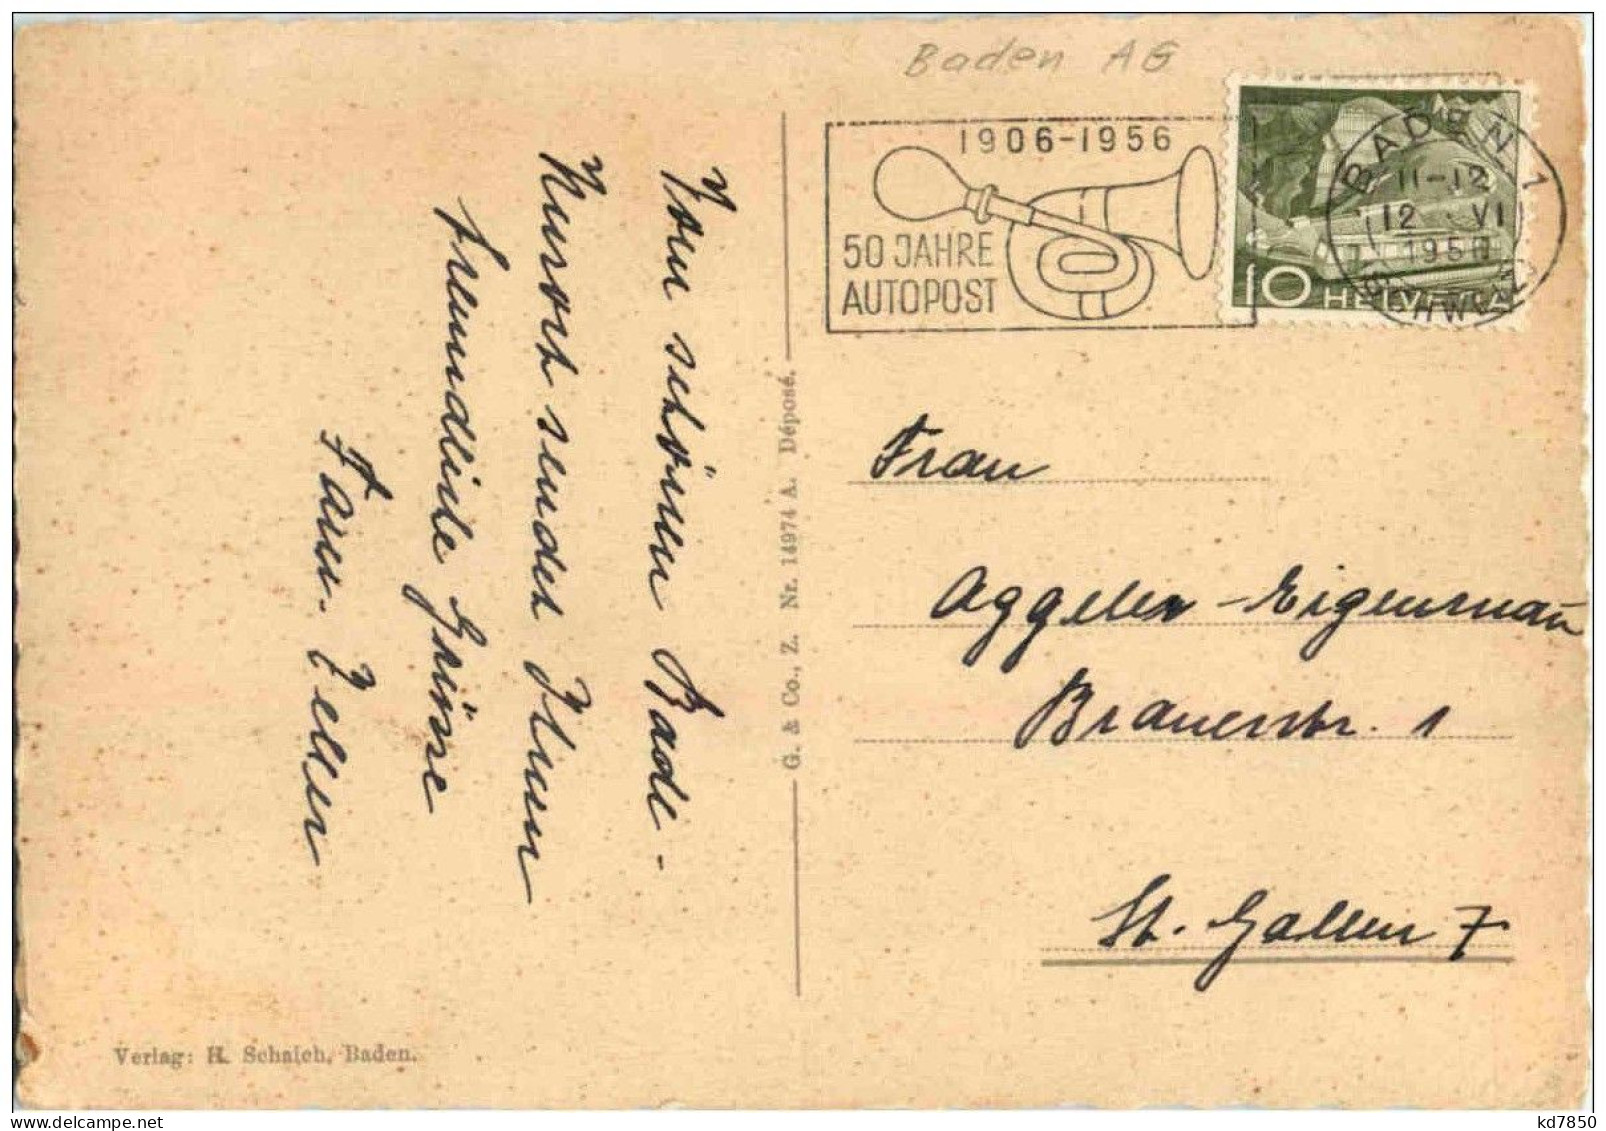 Baden AG
1906-1956
50 JAHRE
AUTOPOST
BADEN 1
11-12
12. VI
1956
(SCHWEIZ)
10 HELVETIA
Vom schönen Bade-
Kurort sendet Ihnen
freundliche Grüsse
Fam. Zeller
G. & Co., Z. Nr. 14974 A. Déposé.
Frau
Aggeler-Eigenmann
Brauerstr. 1
St. Gallen 7
Verlag: H. Schaich, Baden.
kd7850